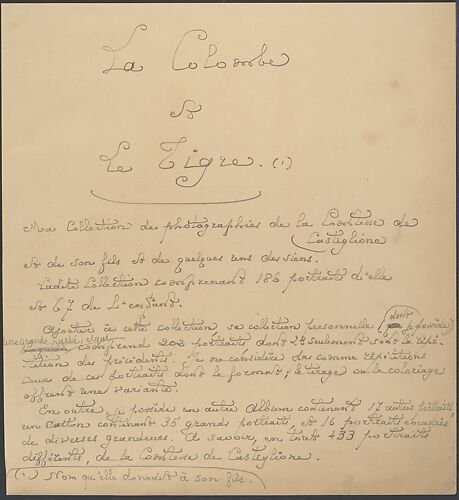 La Colombe
&
Le Tigre. (1)
Ma Collection de photographies de la Comtesse de
Castiglione
& de son fils & de quelques uns des siens.
Ladite Collection comprenant 186 portraits d'elle
& 67 de l'enfant.
Ajouter à cette collection, sa collection personnelle (dont je possède
une grande partie
comprend 202 portraits dont 28 seulement sont la répé-
tition des précédents. Je ne considère pas comme répétitions
ceux de ces portraits dont le format, le tirage ou le coloriage
offrent une variante.
En outre, je possède un autre Album contenant 17 autres portraits,
un carton contenant 35 grands portraits, & 16 portraits encadrés
de diverses grandeurs. A savoir, en tout 433 portraits
différents, de la Comtesse de Castiglione.
(1) Nom qu'elle donnait à son fils.